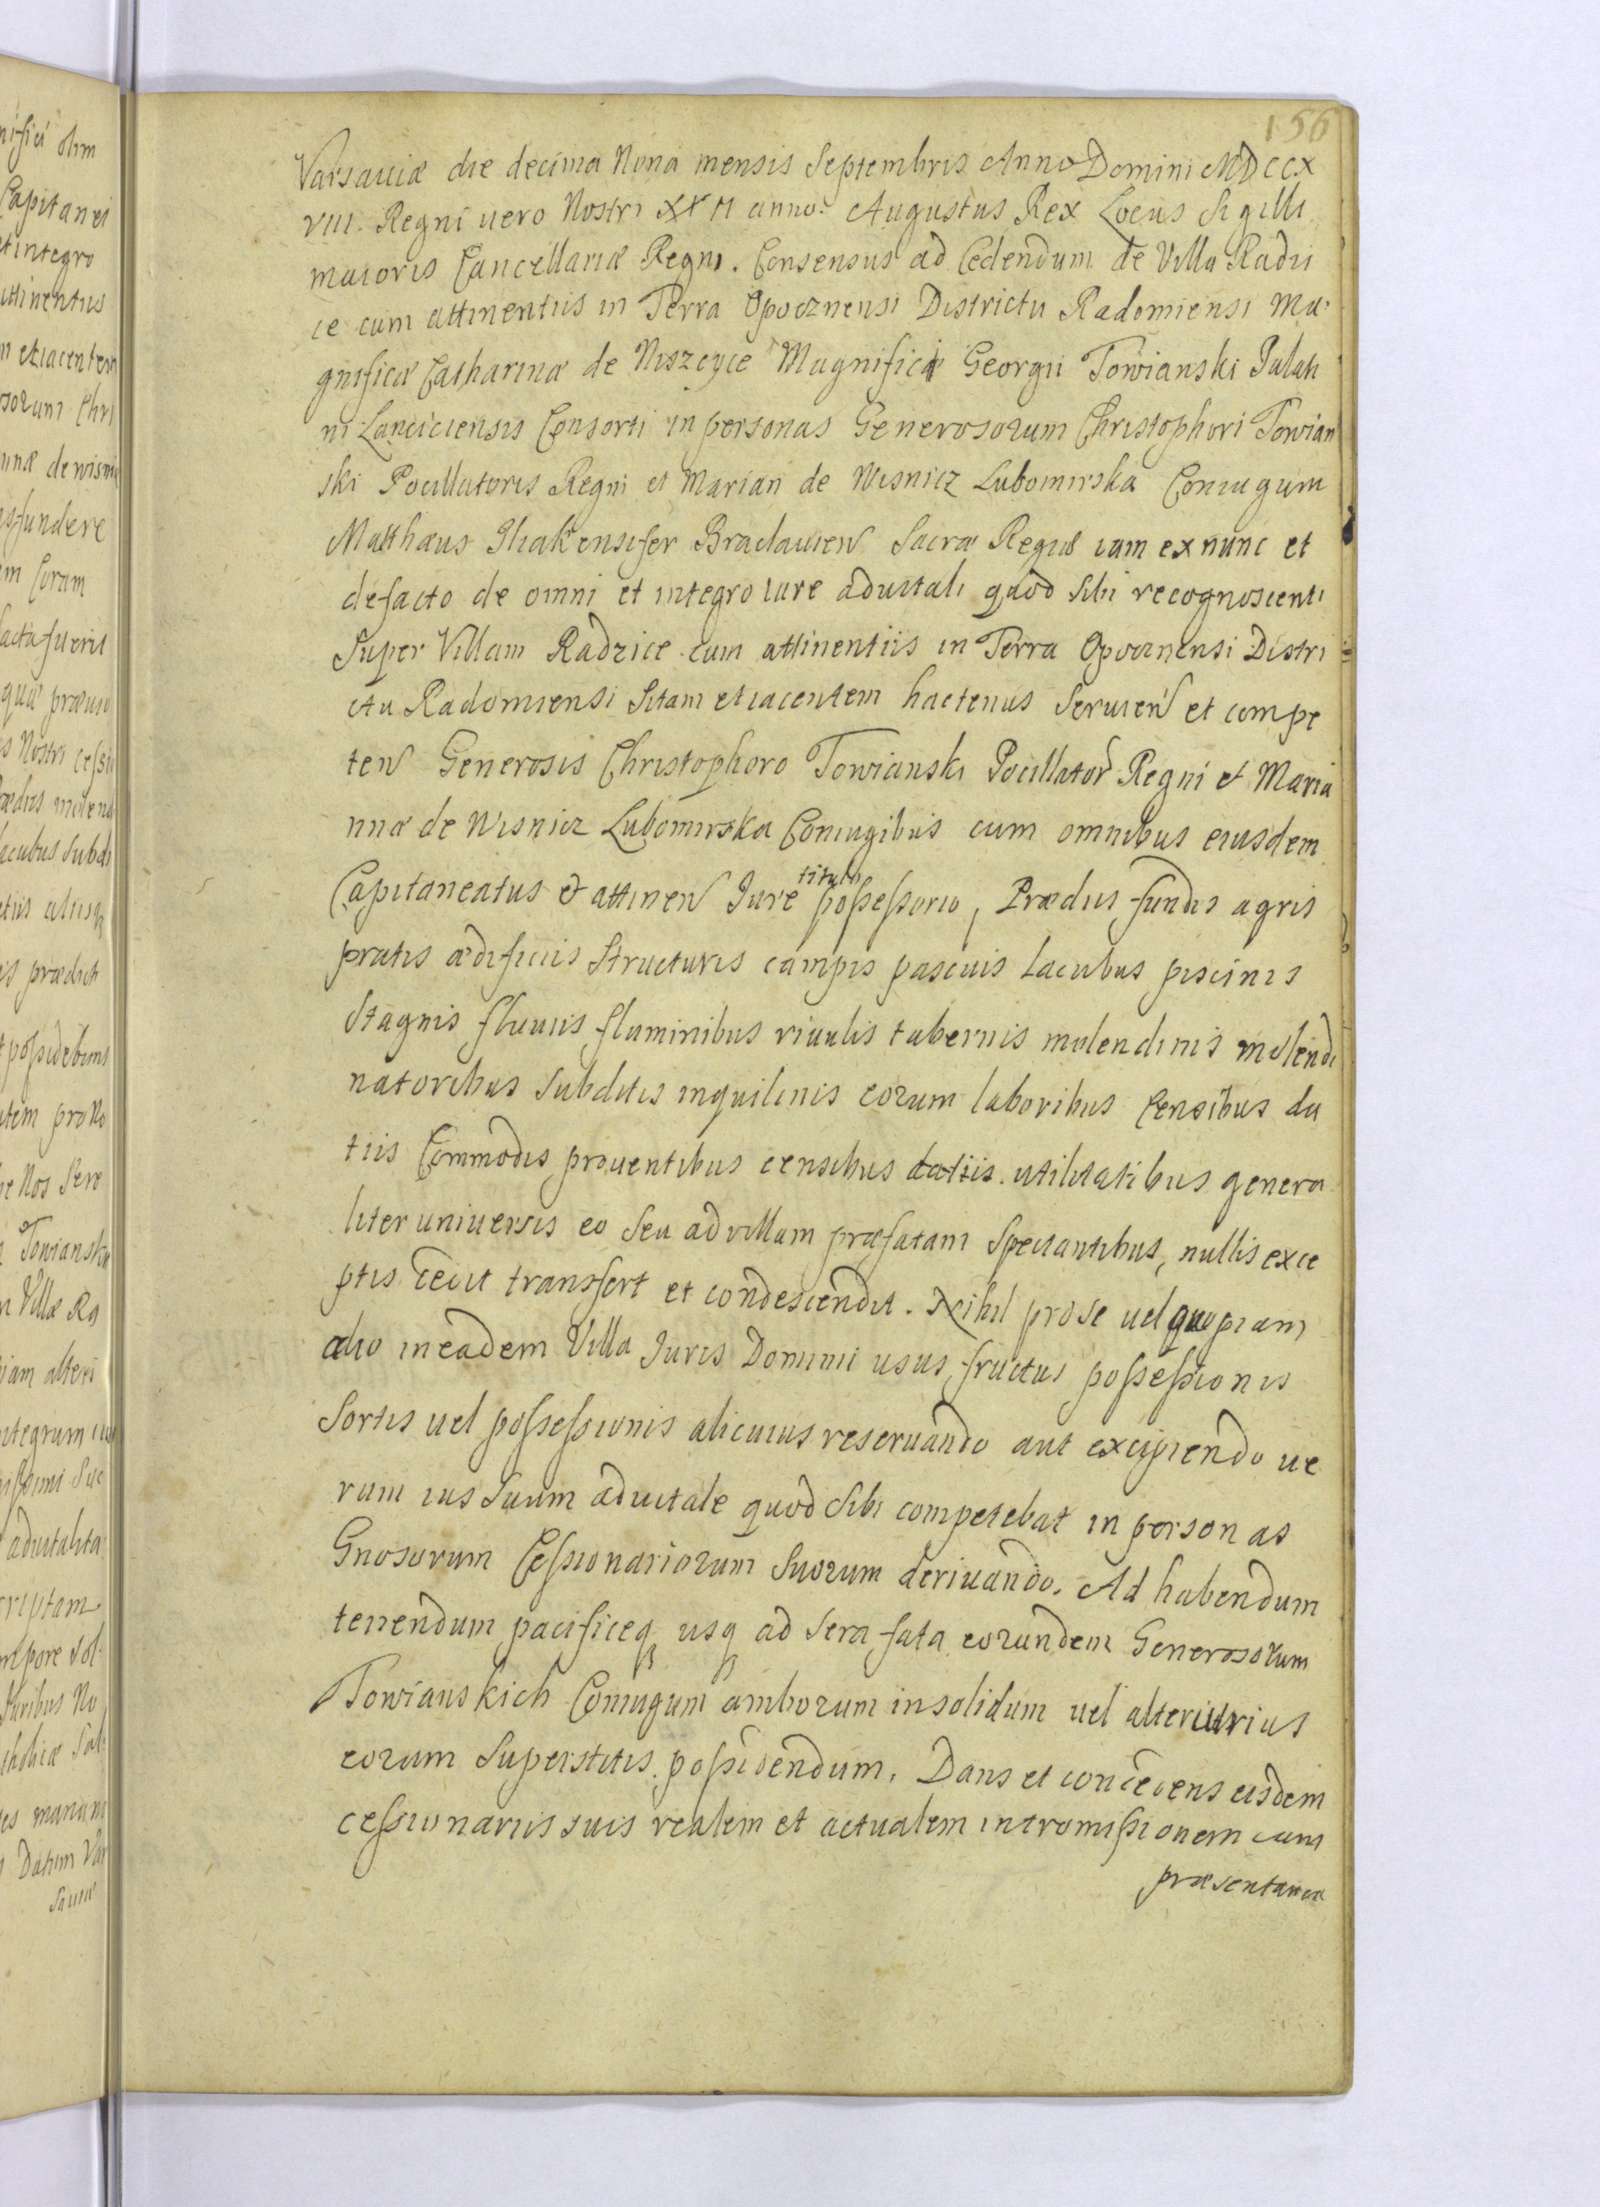 156
Varsaviæ die decima Nona mensis Septembris Anno Domini MDCCX
VIII. Regni vero Nostri XXII anno. Augustus Rex Locus Sigilli
maioris Cancellariæ Regni. Consensus ad Cedendum de Villa Radzi
ce cum attinentiis in Terra Opocznensi Districtu Radomiensi Ma
gnificæ Catharinæ de Niszcyce Magnifici Georgii Towianski Palati
ni Lanciciensis Consorti in personas Generosorum Christophori Towian
ski Pocillatoris Regni et Marian de Wisnicz Lubomirska Coniugum
Matthæus Ensifer Braclavien Sacræ Regiæ iam ex nunc et
defacto de omni et integro iure advitali quod sibi recognoscenti
Super Villam Radzice cum attinentiis in Terra Opocznensi Distri
ctu Radomiensi Sitam et iacentem hactenus Servien et compe
ten Generosis Christophoro Towianski Pocillator Regni et Maria
nnæ de Wisnicz Lubomirska Coniugibus cum omnibus eiusdem
Capitaneatus & attinen Jure titulo possessorio, Prædiis fundis agris
pratis ædificiis Structuris campis pascuis Lacubus piscinis
Stagnis fluviis fluminibus rivulis tabernis molendinis molendi
natoribus Subditis inquilinis eorum laboribus Censibus da
tiis Commodis proventibus censibus datiis utilitatibus genera
liter universis eo Seu ad villam præfatam Spectantibus, nullis exce
ptis cedit transfert et condescendit. Nihil pro se vel quopiam
alio in eadem Villa Juris Dominii usus fructus possessionis
Sortis vel possessionis alicuius reservando aut excipiendo ve
rum ius Suum advitale quod Sibi competebat in personas
Gnosorum Cessionariorum Suorum derivando. Ad habendum
tenendum pacificeq usq ad Sera fata eorundem Generosorum
Towianskich Coniugum amborum insolidum vel alterutrius
eorum Superstitis possidendum. Dans et concedens eisdem
cessionariis suis realem et actualem intromissionem iam
præsentanea